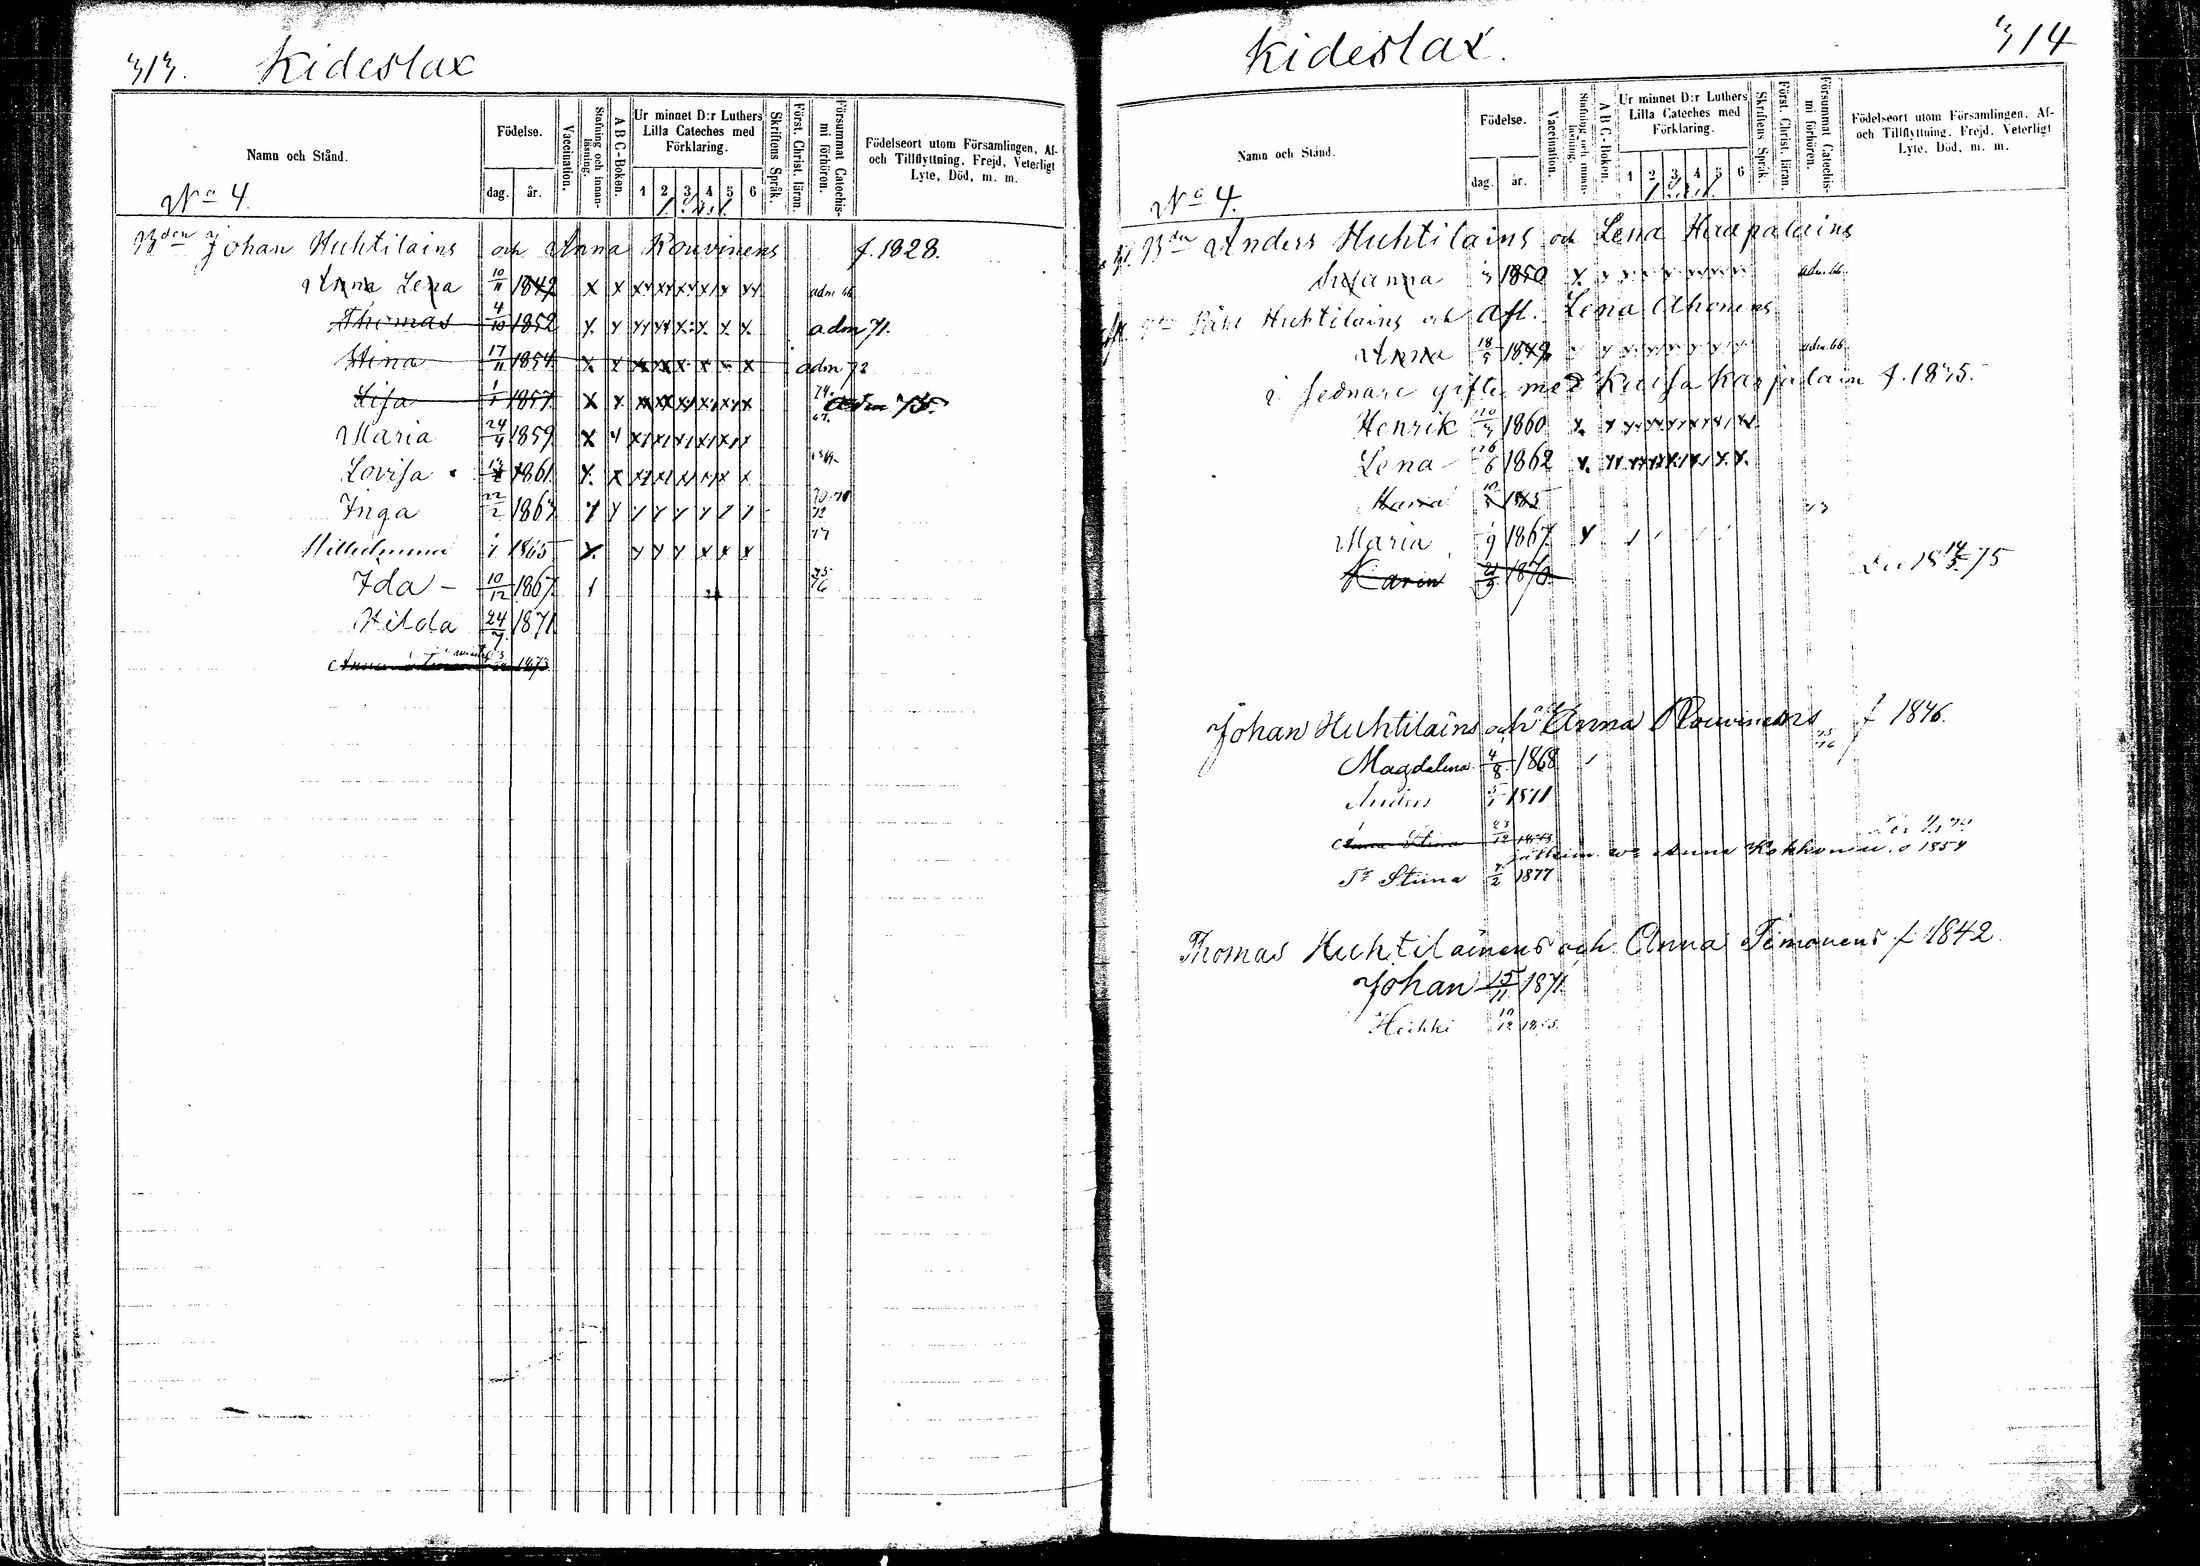 313. Kideslax
Namn och Stånd.
Födelse.
dag. år.
Vaccination.
Stafning och innanläsning.
A B C-Boken.
Ur minnet D:r Luthers Lilla Cateches med Förklaring.
1 2 3 4 5 6
Skriftens Språk.
Först. Christ. läran.
Försummat Catechismi förhören.
Födelseort utom Församlingen, Af- och Tillflyttning, Frejd, Veterligt Lyte, Död, m. m.
No 4.
Bden Johan Huhtilains och Anna Rouvinens f. 1828.
Anna Lena 10/11 1849 adm 66
Thomas 4/10 1852 adm 71.
Stina 17/11 1854 adm 72
Lisa 1/1 1857 adm 75.
Maria 24/4 1859
Lovisa 1861
Inga 22/2 1863
Wilhelmina 1865
Ida 10/12 1867
Hilda 24/7 1871
Anna 1873
Kideslax. 314
Namn och Stånd.
Födelse.
dag. år.
Vaccination.
Stafning och innanläsning.
A B C-Boken.
Ur minnet D:r Luthers Lilla Cateches med Förklaring.
1 2 3 4 5 6
Skriftens Språk.
Först. Christ. läran.
Försummat Catechismi förhören.
Födelseort utom Församlingen, Af- och Tillflyttning, Frejd, Veterligt Lyte, Död, m. m.
No 4.
Bdn Anders Huhtilains och Lena Haapalains
Susanna 1850 adm. 66
Påhl Huhtilains och Afl. Lena Ahonens
Anna 18/5 1849 adm. 66
i sednare gifte med Kaisa Karjalain f. 1835.
Henrik 1860
Lena 16/6 1862
Maria 1865
Maria 1/9 1867
Karin 21/9 1870
Johan Huhtilains och Anna Rouvinens f 1846.
Magdalena 4/8 1868
Anders 1871
Anna Stina 23/12 1873
Anna Kokkonen, 1854
Stiina 1877
Thomas Huhtilainens och Anna Timonens f. 1842.
Johan 15/11 1871
Heikki 10/12 1875.